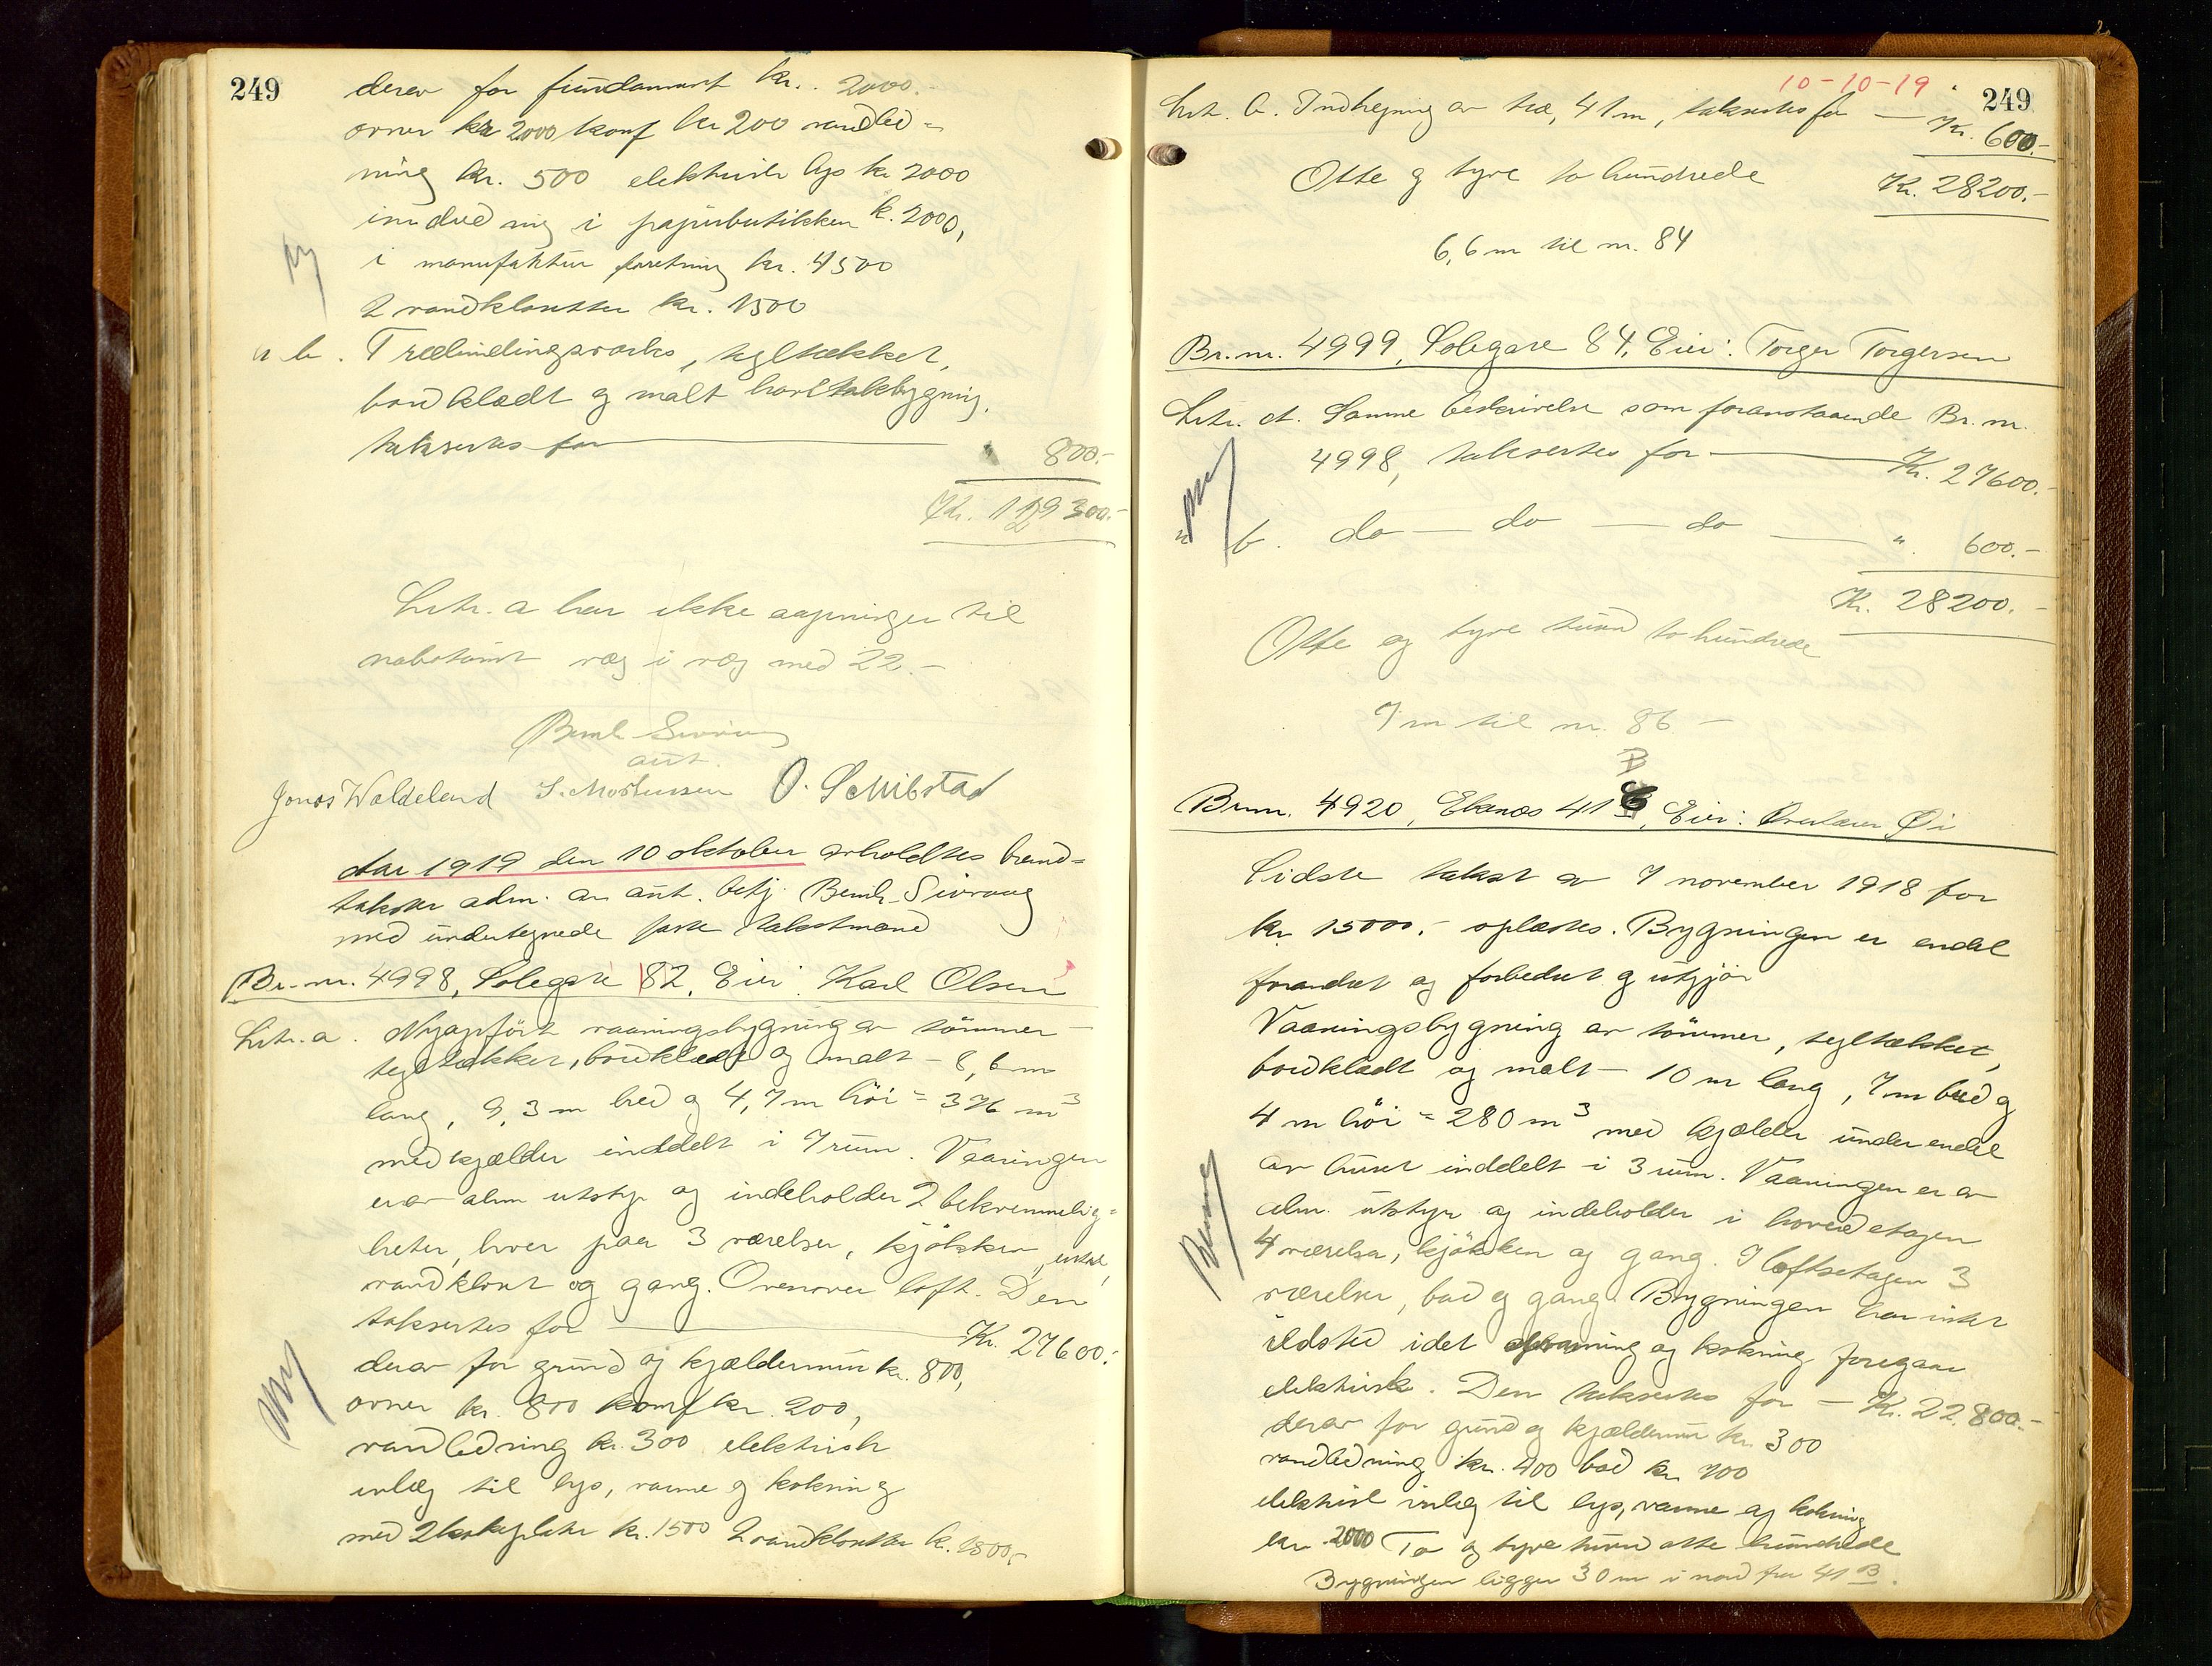 249
derav for fundament kr. 2000.-
ovner kr 2000 komf kr 200 vandled=
ning kr. 500 elektrisk lys kr 2000
inndredning i papirbutikken k. 2000,
i manufaktur forretning kr. 4500
2 vandklosetter kr. 1500
" b. Træbindingsverks, tegltækket,
bordklædt og malt halvtakbygning.
taksertes for 800.-
Kr. 119300.-
Litr. a har ikke aapninger til
nabotomt væg i væg med 22.-
Bernh Sivrang
aut.
Jonas Waldeland S. Mortensen O. Schibstad
Aar 1919 den 10 oktober avholdtes brand=
takster adm. av aut. betj. Bernh. Sivrang
med undertegnede faste takstmænd
Br.-nr. 4998, Solegate 82, Eier: Karl Olsen
Litr. a. Nyopført vaaningsbygning av tömmer
tegltækket, bordklædt og malt - 8,6 m
lang, 9,3 m bred og 4,7 m höi = 376 m³
med kjælder inddelt i 7 rum. Vaaningen
er av alm utstyr og indeholder 2 bekvemmelig=
heter, hver paa 3 værelser, kjökken, entre,
vandkloset og gang. Ovenover loft. Den
taksertes for Kr. 27600.-
derav for grund og kjældermur kr. 800,
ovner kr. 800 komf kr. 200,
vandledning kr. 300 elektrisk
inlæg til lys, varme og kokning
med 2 kokeplater kr. 1500 2 vandklosetter k. 1800.-
10-10-19
249
Litr. b. Indhegning av træ, 41 m, taksertes for Kr. 600.-
Otte og tyve to hundrede Kr. 28200.-
6,6 m til nr. 84
Br. nr. 4999, Solegate 84, Eier: Torger Torgersen
Litr. a. Samme beskrivelse som foranstaaende Br. nr.
4998, taksertes for Kr. 27600.-
" b. do - do - do " 600.-
Kr. 28200.-
Otte og tyve tusind to hundrede
7 m til nr. 86 -
B
Br nr. 4920, Ekenæs 41, Eier: Øi
Sidste takst av 7 november 1918 for
kr. 15000.- oplæstes. Bygningen er endel
forandret og forbedret og utgjör
Vaaningsbygning av tömmer, tegltækket,
bordklædt og malt - 10 m lang, 7 m bred og
4 m höi = 280 m³ med kjælder under endel
av huset inddelt i 3 rum. Vaaningen er av
alm. utstyr og indeholder i hovedetagen
4 værelser, kjökken og gang. I loftsetagen 3
værelser, bad og gang. Bygningen har intet
ildsted idet opvarmning og kokning foregaar
elektrisk. Den taksertes for - Kr. 22.800.-
derav for grund og kjældermur kr. 300
vandledning kr. 400 bad kr 700
elektrisk inlæg til lys, varme og kokning
kr. 2000 To og tyve tusind otte hundrede
Bygningen ligger 30 m i nord fra 41 B.